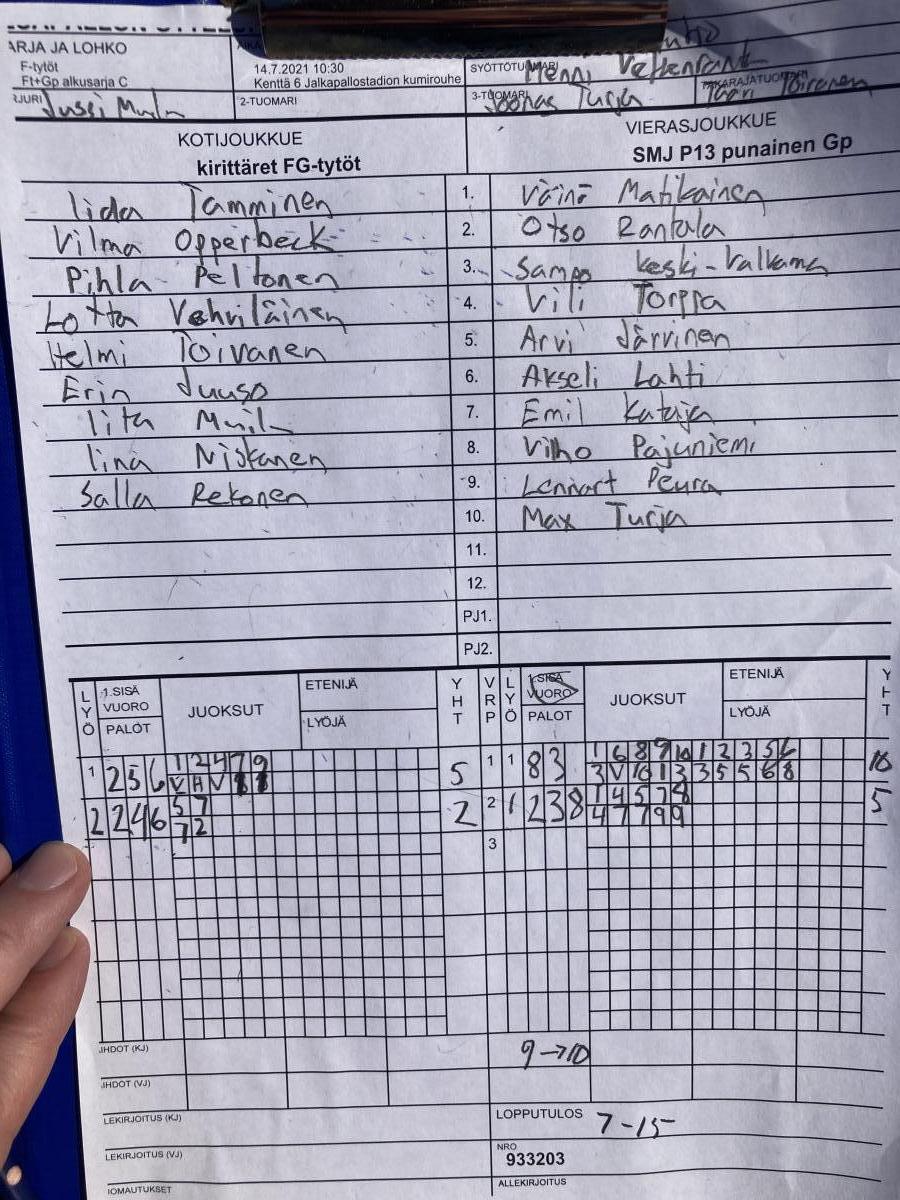 ARJA JA LOHKO
F-tytöt
Ft+Gp alkusarja C
14.7.2021 10:30
Kenttä 6 Jalkapallostadion kumirouhe
SYÖTTÖTUOMARI
Henni
JURI
Jussi
2-TUOMARI
3-TUOMARI
Joonas Turja
KOTIJOUKKUE
kirittäret FG-tytöt
VIERASJOUKKUE
SMJ P13 punainen Gp
Iida Tamminen 1. Väinö Matikainen
Vilma Opperbeck 2. Otso Rantala
Pihla Peltonen 3. Sampo Keski-Valkama
Lotta Vehviläinen 4. Vili Torppa
Helmi Toivanen 5. Arvi Järvinen
Erin Juuso 6. Akseli Lahti
Iita 7. Emil Kataja
Iina Niskanen 8. Vilho Pajuniemi
Salla Rekonen 9. Lennart Peura
10. Max Turja
11.
12.
PJ1.
PJ2.
LYÖ 1.SISÄ VUORO PALOT JUOKSUT ETENIJÄ LYÖJÄ YHT VRP LYÖ 1.SISÄ VUORO PALOT JUOKSUT ETENIJÄ LYÖJÄ YHT
1 2 5 6 1 2 4 7 9 5 1 1 8 3 1 6 8 9 10 1 2 3 5 6 10
V H V 3 V 10 1 3 3 5 5 6 8
2 2 4 6 5 7 2 2 1 2 3 8 1 4 5 7 8 5
7 2 4 7 7 9 9
3
JHDOT (KJ) 9→10
JHDOT (VJ)
LEKIRJOITUS (KJ)
LOPPUTULOS 7-15
LEKIRJOITUS (VJ)
NRO
933203
IOMAUTUKSET
ALLEKIRJOITUS